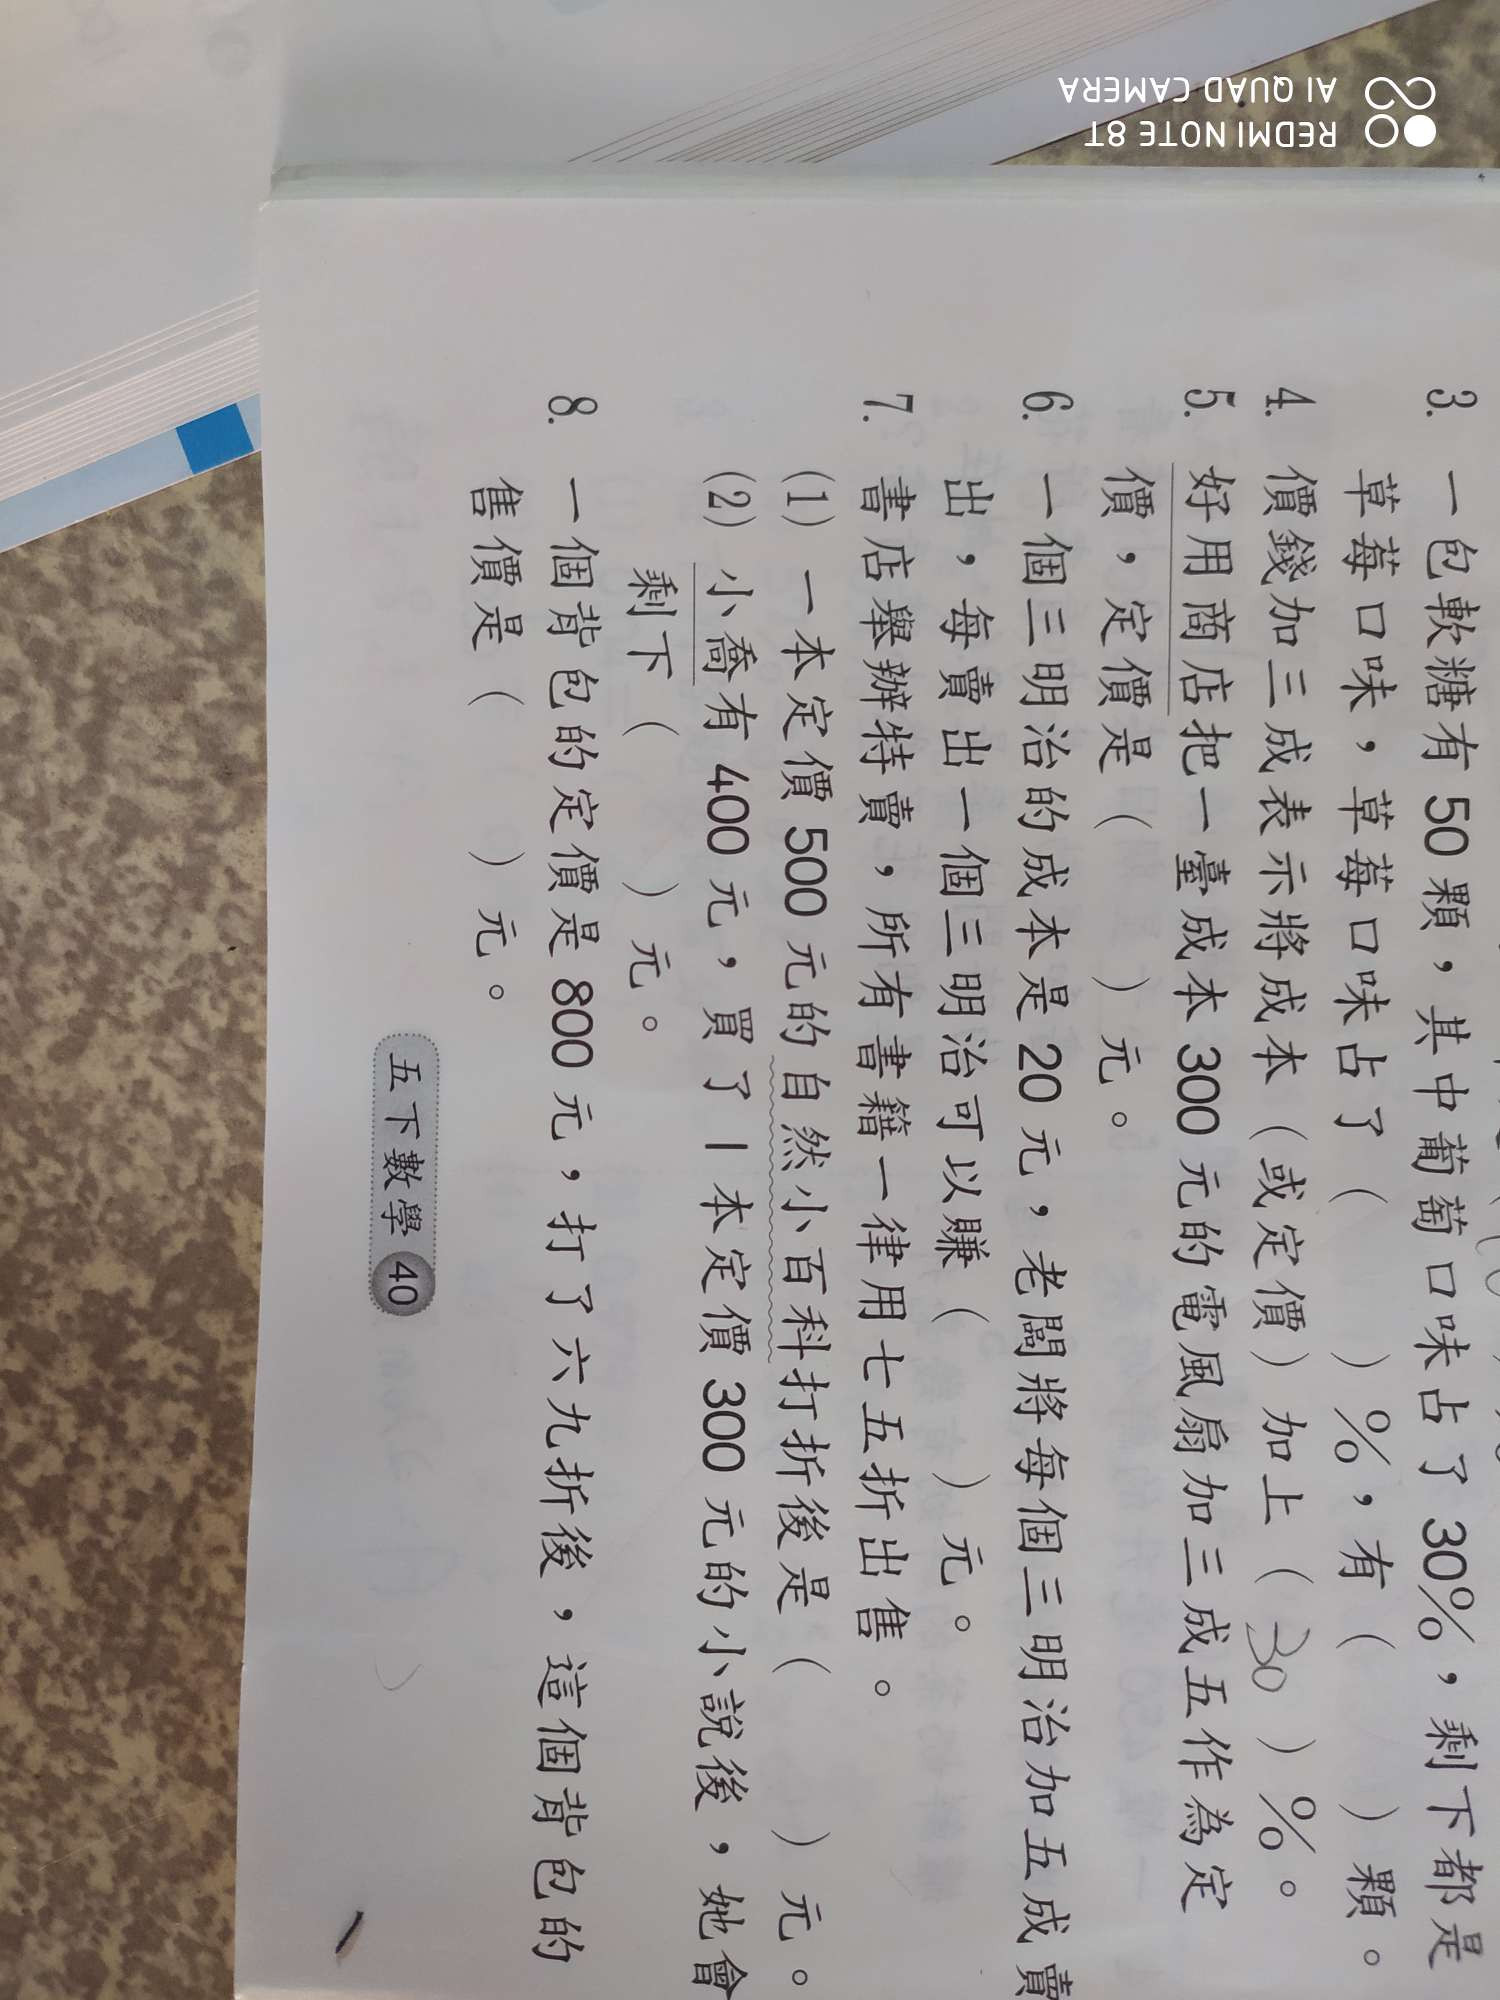 3. 一包軟糖有 50 顆，其中葡萄口味占了 30%，剩下都是
草莓口味，草莓口味占了（　　）%，有（　　）顆。
4. 價錢加三成表示將成本（或定價）加上（30）%。
5. 好用商店把一臺成本 300 元的電風扇加三成五作為定
價，定價是（　　）元。
6. 一個三明治的成本是 20 元，老闆將每個三明治加五成賣
出，每賣出一個三明治可以賺（　　）元。
7. 書店舉辦特賣，所有書籍一律用七五折出售。
(1) 一本定價 500 元的自然小百科打折後是（　　）元。
(2) 小喬有 400 元，買了 1 本定價 300 元的小說後，她會
剩下（　　）元。
8. 一個背包的定價是 800 元，打了六九折後，這個背包的
售價是（　　）元。
五下數學 40
REDMI NOTE 8T
AI QUAD CAMERA